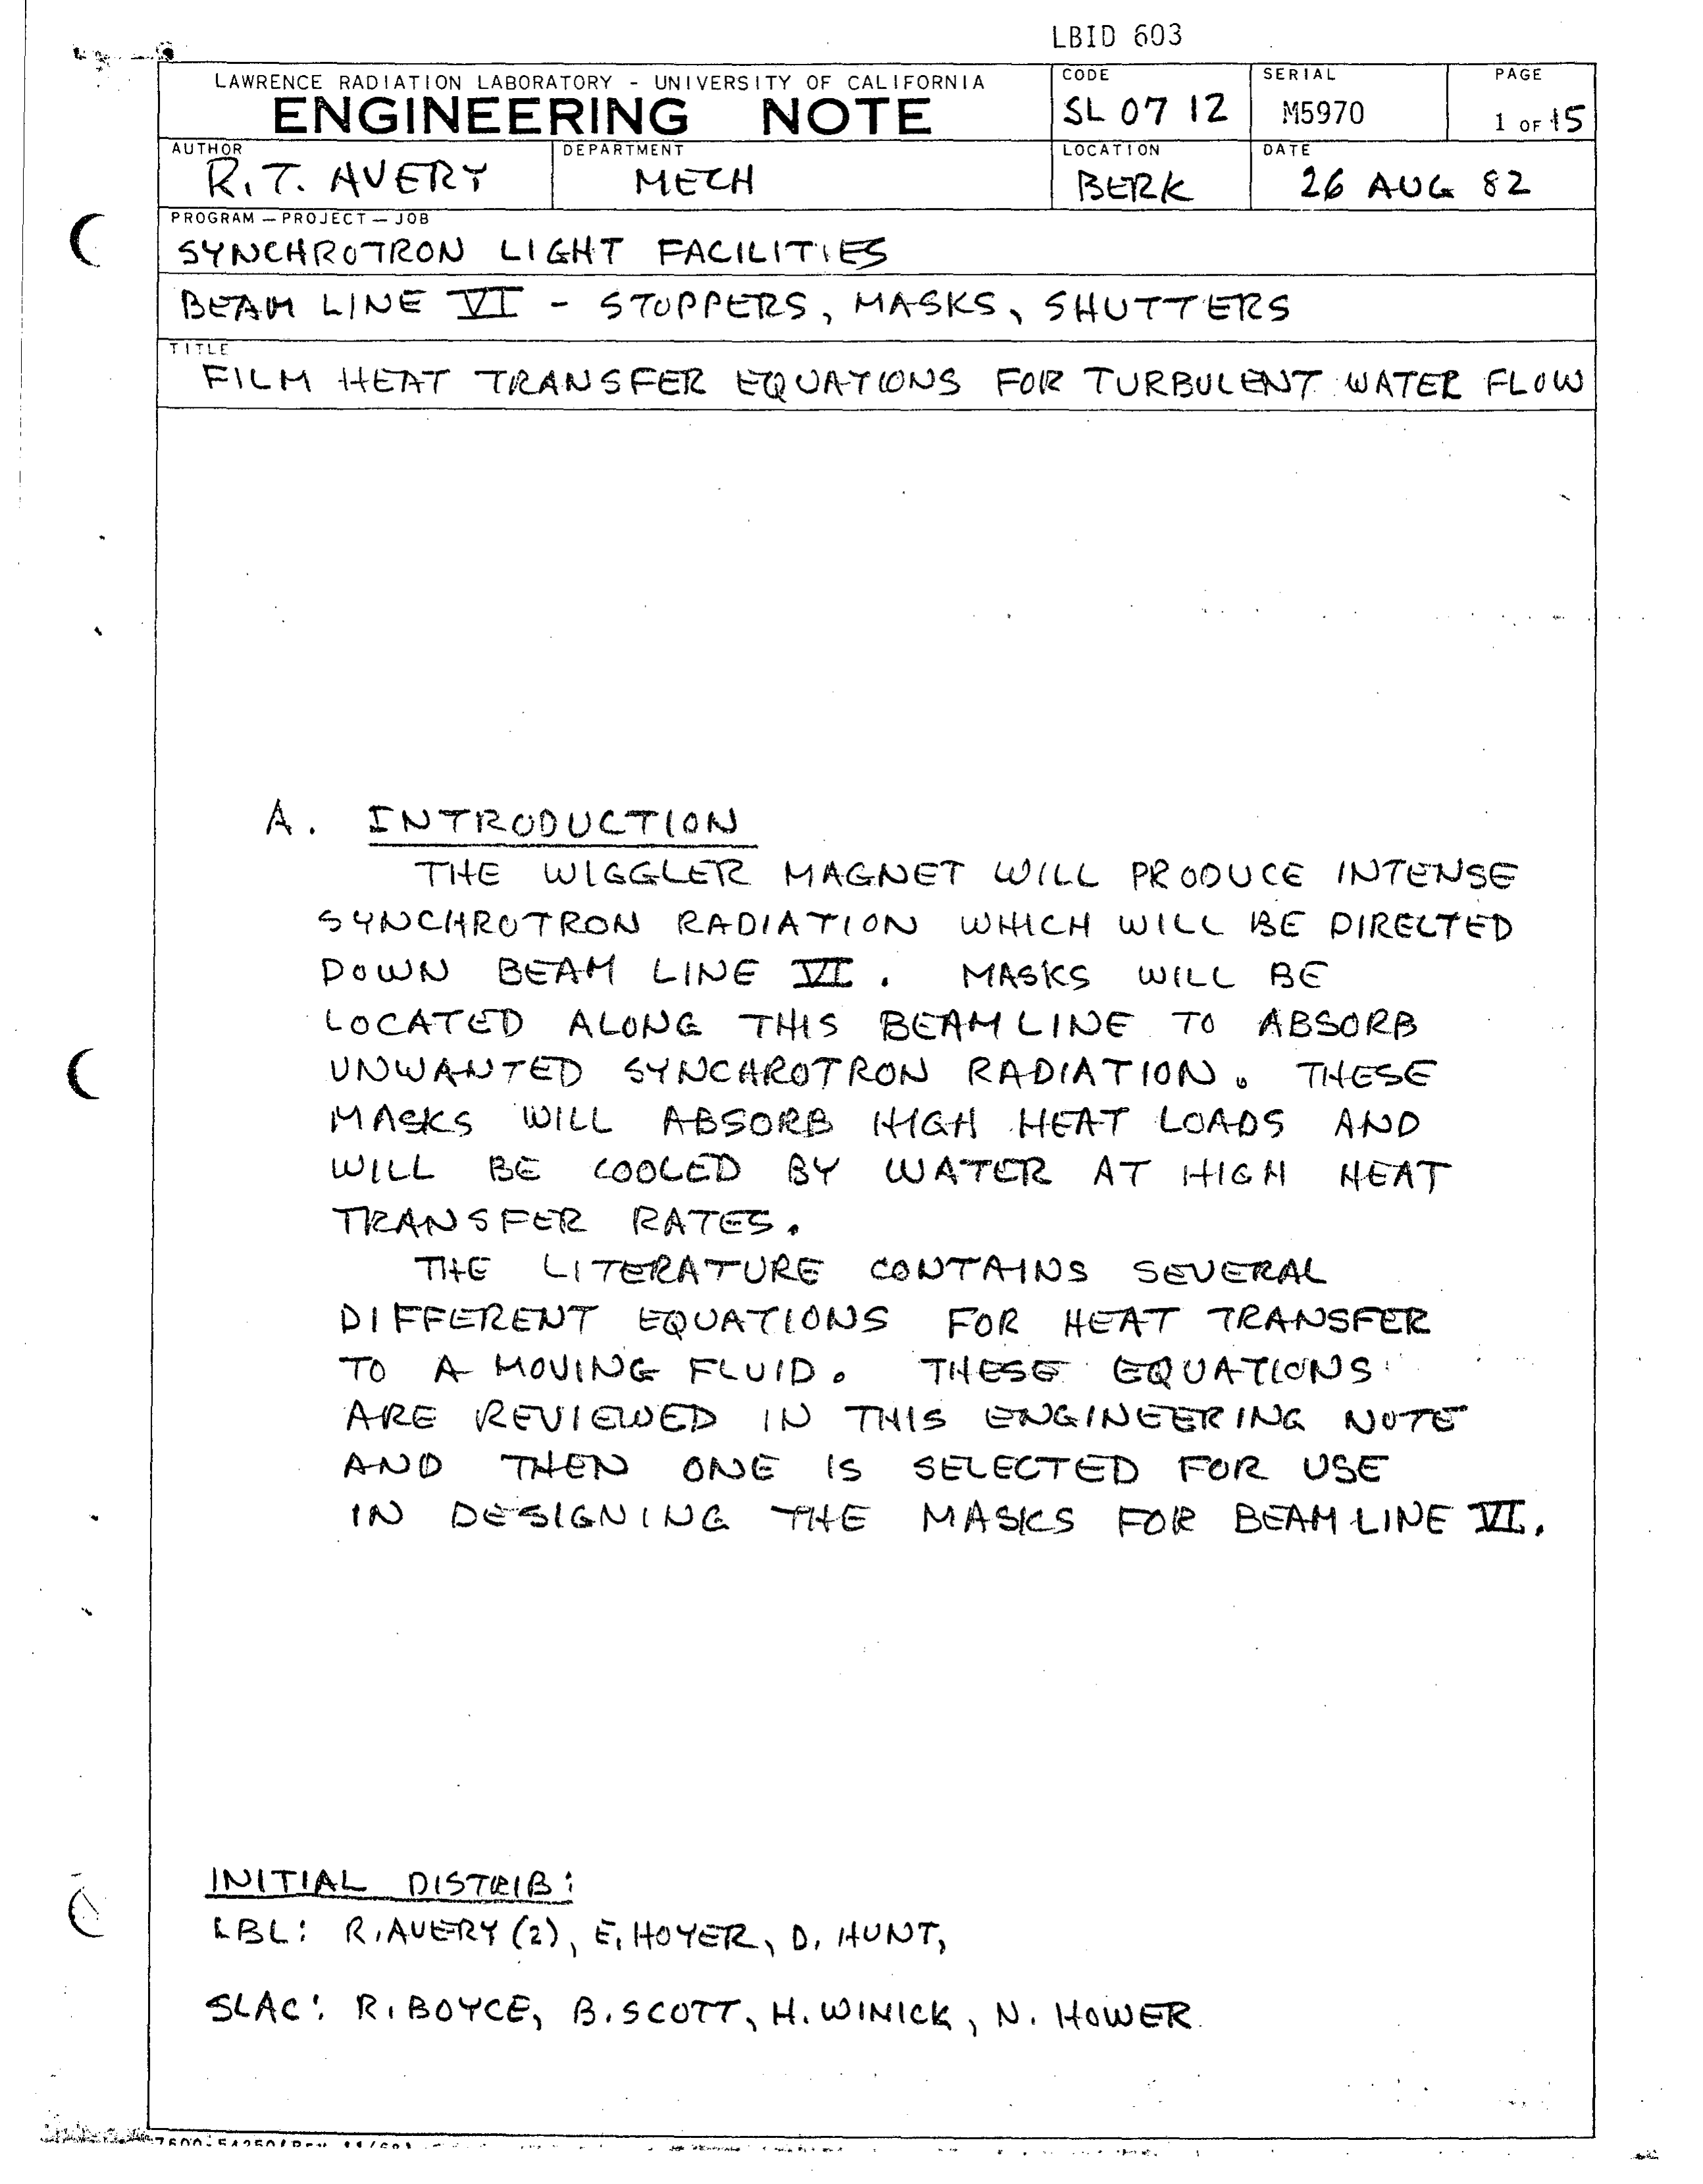 LBID 603
LAWRENCE RADIATION LABORATORY - UNIVERSITY OF CALIFORNIA
ENGINEERING NOTE
CODE
SL 07 12
SERIAL
M5970
PAGE
1 OF 15
AUTHOR
R.T. AVERY
DEPARTMENT
MECH
LOCATION
BERK
DATE
26 AUG 82
PROGRAM - PROJECT - JOB
SYNCHROTRON LIGHT FACILITIES
BEAM LINE VI - STOPPERS, MASKS, SHUTTERS
TITLE
FILM HEAT TRANSFER EQUATIONS FOR TURBULENT WATER FLOW
A. INTRODUCTION
THE WIGGLER MAGNET WILL PRODUCE INTENSE
SYNCHROTRON RADIATION WHICH WILL BE DIRECTED
DOWN BEAM LINE VI. MASKS WILL BE
LOCATED ALONG THIS BEAMLINE TO ABSORB
UNWANTED SYNCHROTRON RADIATION. THESE
MASKS WILL ABSORB HIGH HEAT LOADS AND
WILL BE COOLED BY WATER AT HIGH HEAT
TRANSFER RATES.
THE LITERATURE CONTAINS SEVERAL
DIFFERENT EQUATIONS FOR HEAT TRANSFER
TO A MOVING FLUID. THESE EQUATIONS
ARE REVIEWED IN THIS ENGINEERING NOTE
AND THEN ONE IS SELECTED FOR USE
IN DESIGNING THE MASKS FOR BEAMLINE VI.
INITIAL DISTRIB:
LBL: R. AVERY (2), E. HOYER, D. HUNT,
SLAC: R. BOYCE, B. SCOTT, H. WINICK, N. HOWER